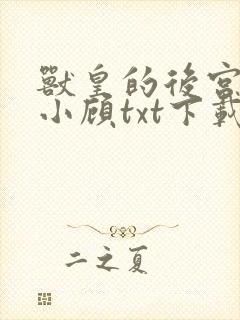 獸皇的後宮
小顧txt下載
二之夏